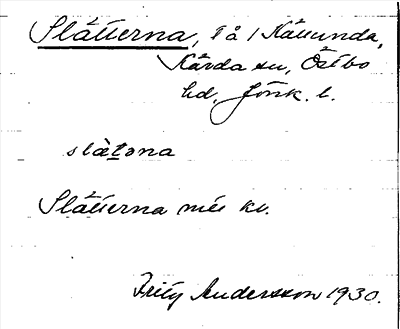 Slätterna, t å 1 Kållunda,
Kärda sn, Östbo
hd, Jönk. l.
slàtəna
Slätterna
Fritz Andersson 1930.